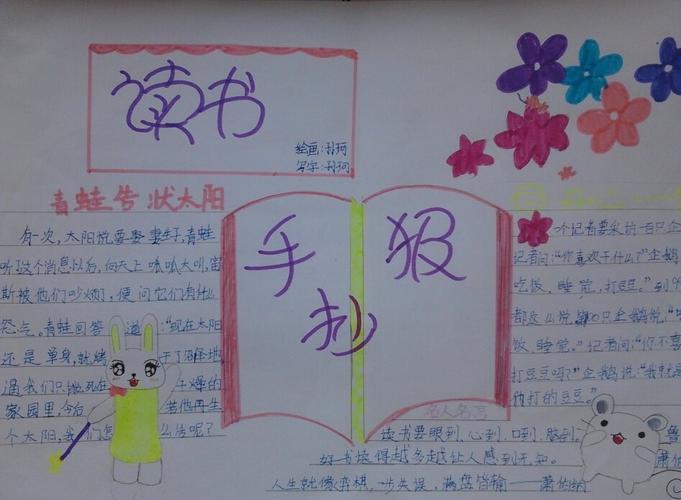 读书
绘画:孙珂
写字:孙珂
青蛙告状太阳
有一次,太阳说要娶妻生子,青蛙
听了这个消息以后,向天上呱呱大叫,宙
斯被他们吵烦了,便问它们有什么
怨气。青蛙回答道:“现在太阳
还是单身,就烤干了沼泽地
逼我们只能死在干燥的
家园里,今后若他再生
个太阳,我们怎么活呢?
手抄报
一个记者要采访一百只企
记者问:“你喜欢干什么?”企鹅
吃饭、睡觉,打豆豆。”到
都这么说,第100只企鹅说,“吃
饭、睡觉。”记者问:“你不喜
打豆豆吗?”企鹅说:“我就是
他们打的豆豆。”
名人名言
读书要眼到、心到、口到、脑到 鲁
好书读得越多越让人感到无知。 萧伯
人生就像弈棋,一步失误,满盘皆输——萧伯纳